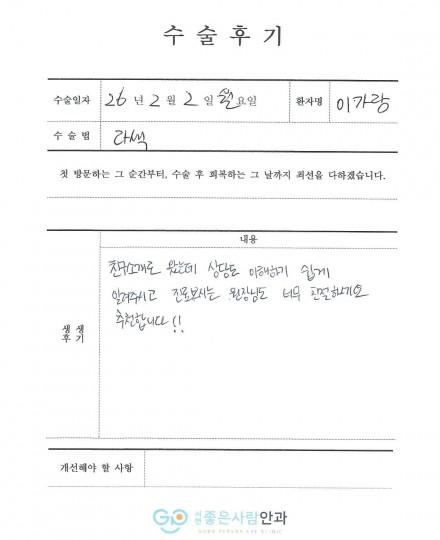 수 술 후 기
수술일자 26 년 2 월 2 일 월 요일 환자명 이가랑
수 술 법 라섹
첫 방문하는 그 순간부터, 수술 후 회복하는 그 날까지 최선을 다하겠습니다.
내용
친구소개로 왔는데 상담도 이해하기 쉽게
알려주시고 진료보시는 원장님도 너무 친절하시구요
추천합니다!!
생생
후기
개선해야 할 사항
좋은사람안과
GOOD PERSON EYE CLINIC